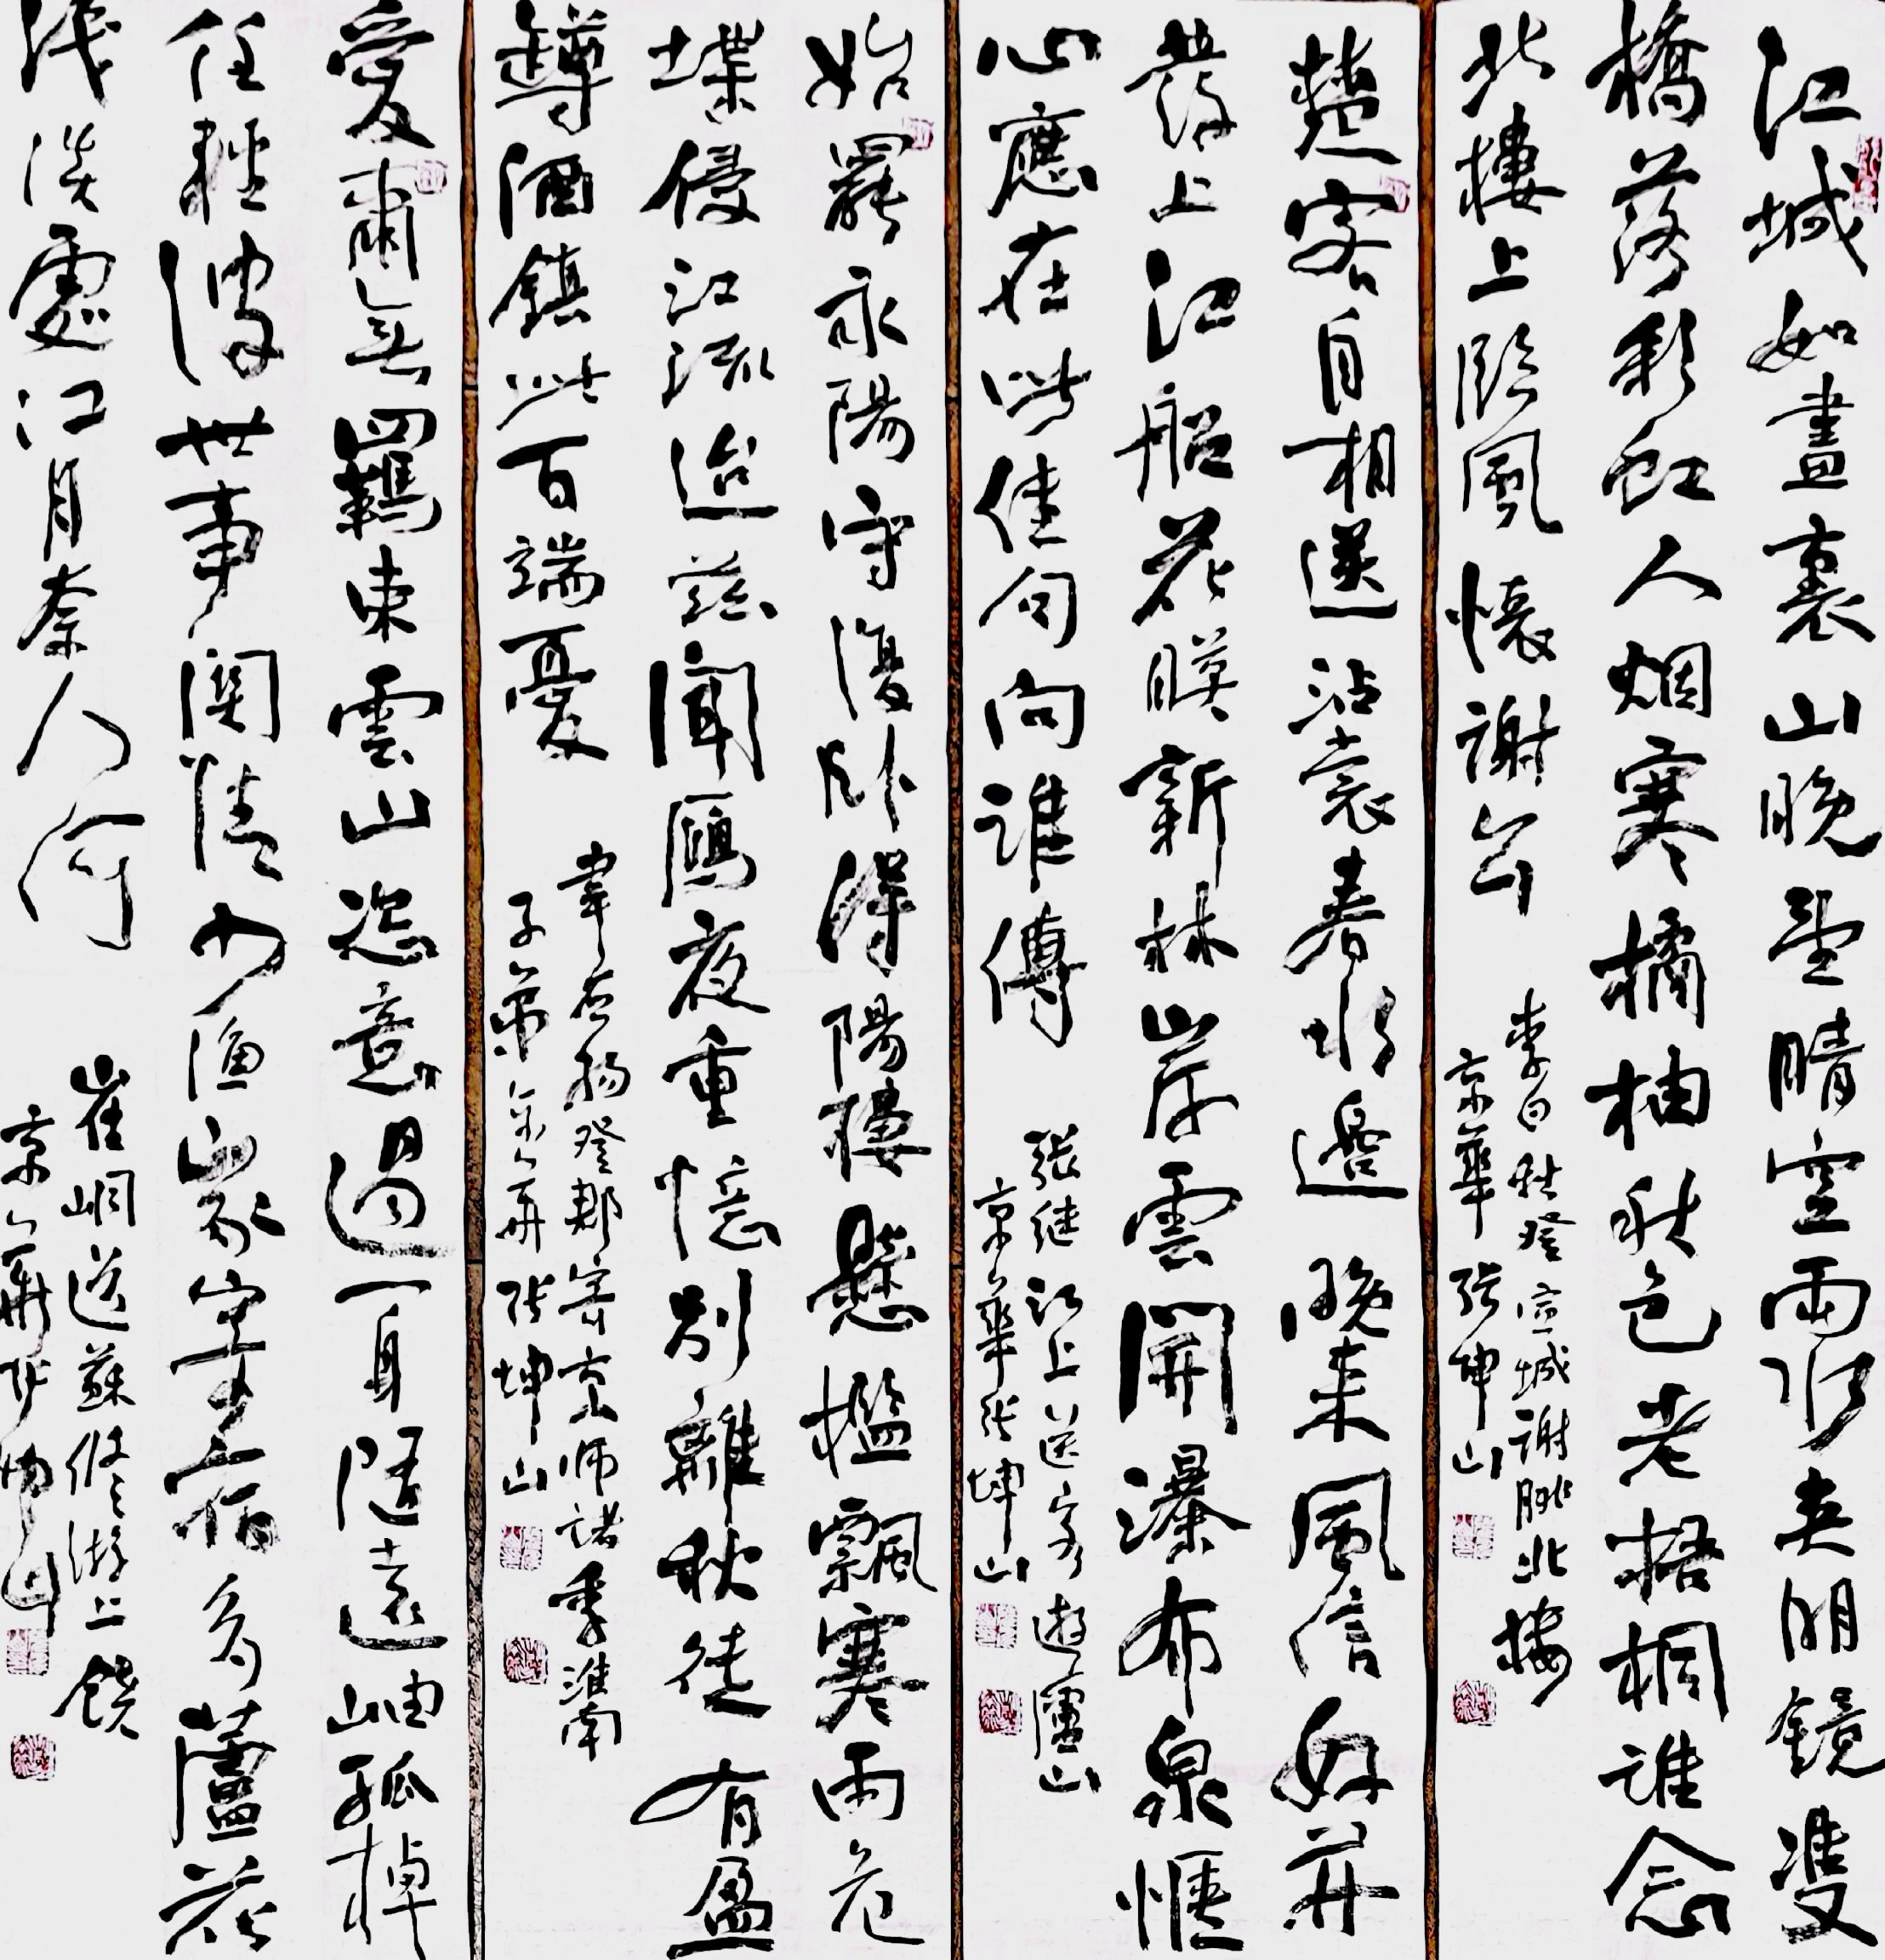 江城如畫裏山晚望晴空兩水夾明鏡雙
橋落彩虹人烟寒橘柚秋色老梧桐誰念
北樓上臨風懷謝公
李白秋登宣城謝朓北楼
京華張坤山
楚客自相送沾裳春水邊晚来風信好并
發上江船花暎新林岸雲開瀑布泉惬
心應在此佳句向誰傳
張继江上送客遊廬山
京華張坤山
始罷永陽守復卧潯陽樓懸檻飄寒雨危
堞侵江流迨兹聞鴈夜重憶別離秋徒有盈
罇酒鎮此百端憂
韋应物登郡寄京师諸季淮南
子弟京華張坤山
愛爾無羈束雲山恣意過一身隨遠岫孤棹
任輕波世事関情少漁家寄宿多蘆花
浅淡處江月奈人何
崔峒送蘇修游上饒
京華張坤山